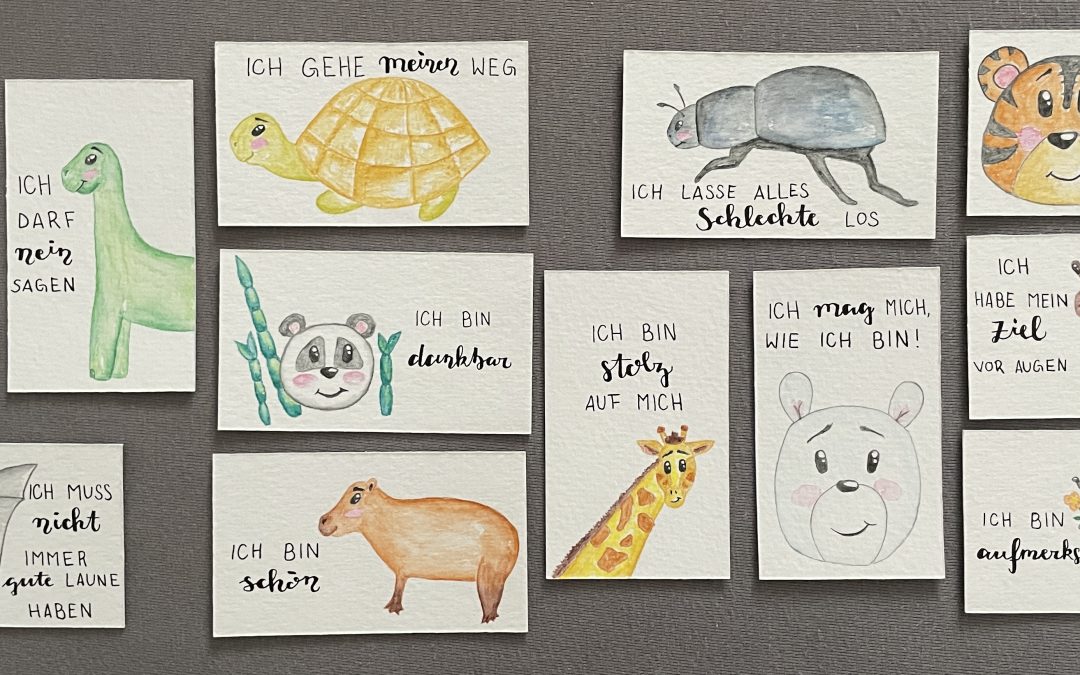 ICH
DARF
nein
SAGEN
ICH MUSS
nicht
IMMER
gute LAUNE
HABEN
ICH GEHE meinen WEG
ICH BIN
dankbar
ICH BIN
schön
ICH BIN
stolz
AUF MICH
ICH LASSE ALLES
Schlechte LOS
ICH mag MICH,
WIE ICH BIN!
ICH
HABE MEIN
Ziel
VOR AUGEN
ICH BIN
aufmerks